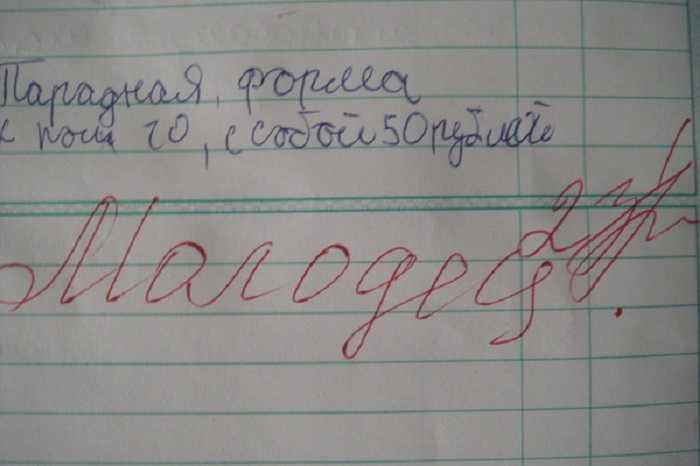 Парадная, форма
к 20, с собой 50 рублей
Малодец